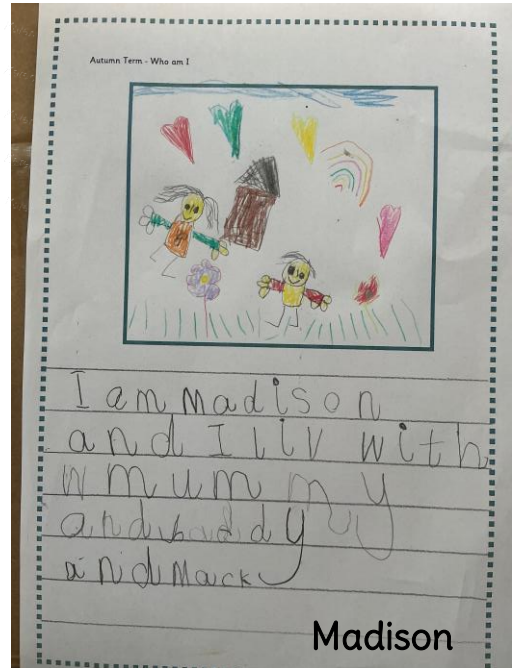 Autumn Term - Who am I
I am madison
and I liv with
w mummy
and daddy
and Mack
Madison